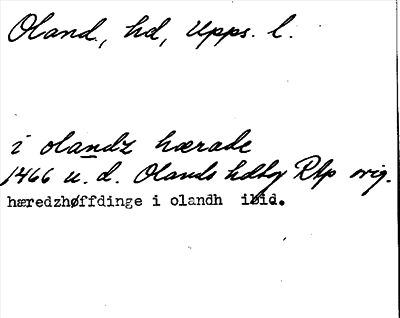 Oland, hd, Upps. l.
i olandz hærade
1466 u. d. Olands hdbg RAp orig.
hæredzhøffdinge i olandh ibid.